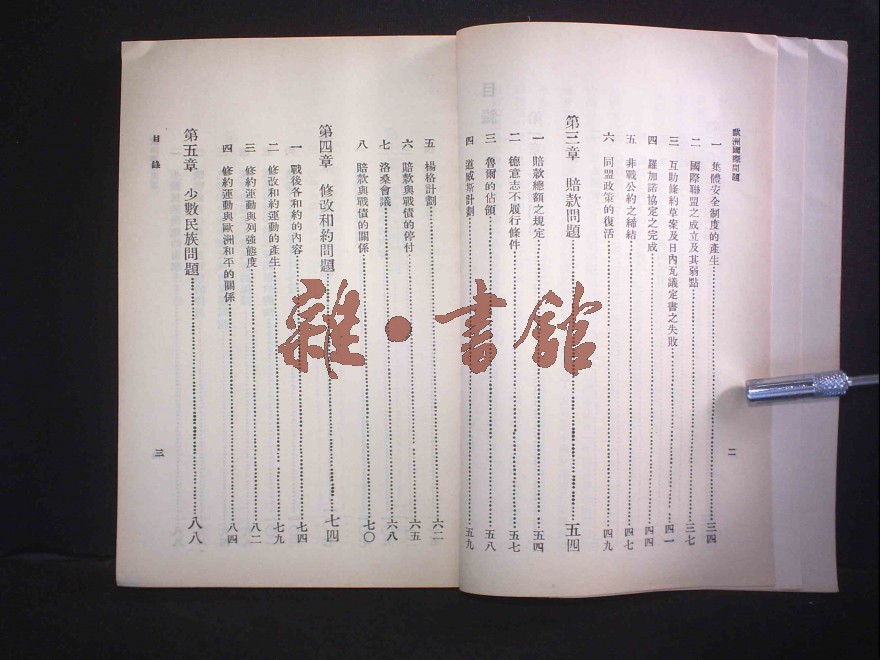 歐洲國際問題
一 集體安全制度的產生……三四
二 國際聯盟之成立及其弱點……三七
三 互助條約草案及日內瓦議定書之失敗……四一
四 羅加諾協定之完成……四四
五 非戰公約之締結……四七
六 同盟政策的復活……四九
第三章 賠款問題……五四
一 賠款總額之規定……五四
二 德意志不履行條件……五七
三 魯爾的佔領……五八
四 道威斯計劃……五九
二
五 楊格計劃……六二
六 賠款與戰債的停付……六五
七 洛桑會議……六八
八 賠款與戰債的關係……七〇
第四章 修改和約問題……七四
一 戰後各和約的內容……七四
二 修改和約運動的產生……七九
三 修約運動與列強態度……八二
四 修約運動與歐洲和平的關係……八四
第五章 少數民族問題……八八
目錄
三
雜·書館